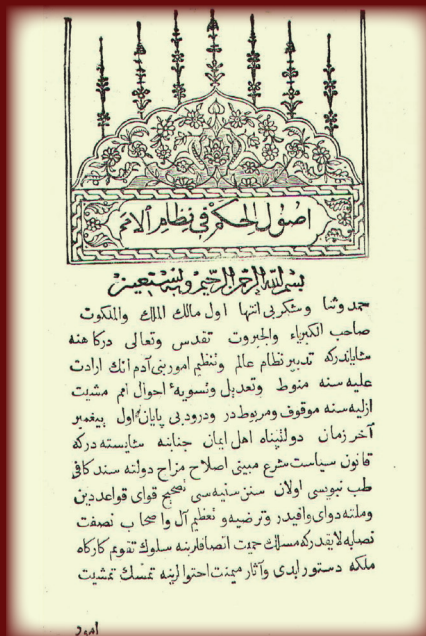 اصول الحكم في نظام الامم
بسم الله الرحمن الرحيم وبه نستعين
حمد وثنا وشكر بی انتها اول مالك الملك والملكوت
صاحب الكبرياء والجبروت تقدس وتعالى دركاهنه
شاياندركه تدبير نظام عالم وتنظيم امور بنی آدم انك ارادت
عليه سنه منوط وتعديل وتسويهٔ احوال امم مشيت
ازليه سنه موقوف ومربوطدر ودرود بی پايان اول پيغمبر
آخر زمان دولتپناه اهل ايمان جنابنه شايسته دركه
قانون سياست شرع مبينی اصلاح مزاج دولته سند كافی
طب نبويسی اولان سنن سنيه سی تصحيح قوای قواعد دين
وملته دوای وافيدر وترضيه وتعظيم آل واصحاب نصفت
نصابه لايقدركه مسالك حميت انصافلرينه سلوك تقويم كاركاه
ملكه دستور ابدی وآثار ميمنت احتوالرينه تمسك تمشيت
امور